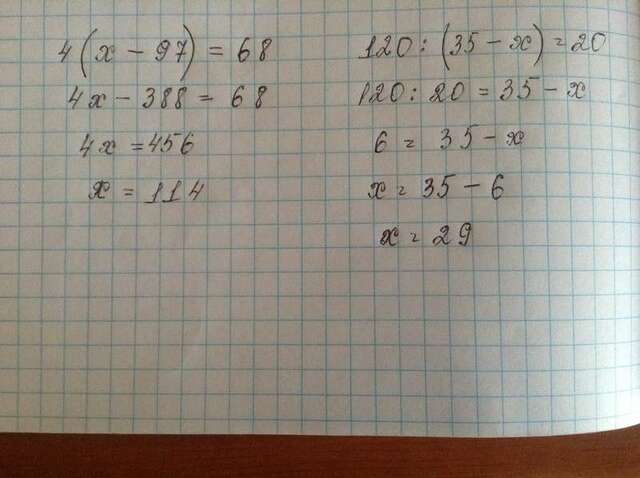 4(x - 97) = 68
4x - 388 = 68
4x = 456
x = 114
120 : (35 - x) = 20
120 : 20 = 35 - x
6 = 35 - x
x = 35 - 6
x = 29